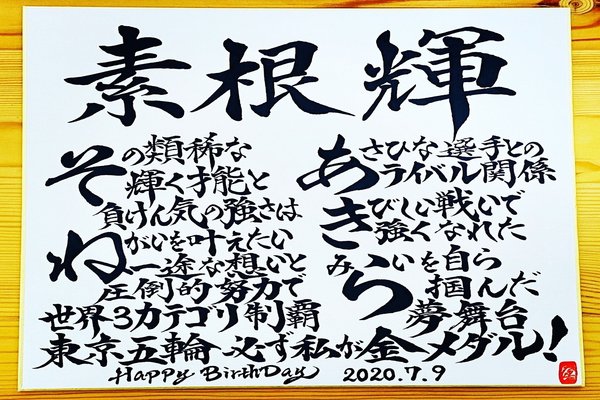 素根輝
その類稀な
輝く才能と
負けん気の強さは
ねがいを叶えたい
一途な想いと
圧倒的努力で
世界3カテゴリ制覇
あさひな選手との
ライバル関係
きびしい戦いで
強くなれた
みらいを自ら
掴んだ
夢舞台
東京五輪 必ず私が金メダル!
Happy BirthDay 2020.7.9